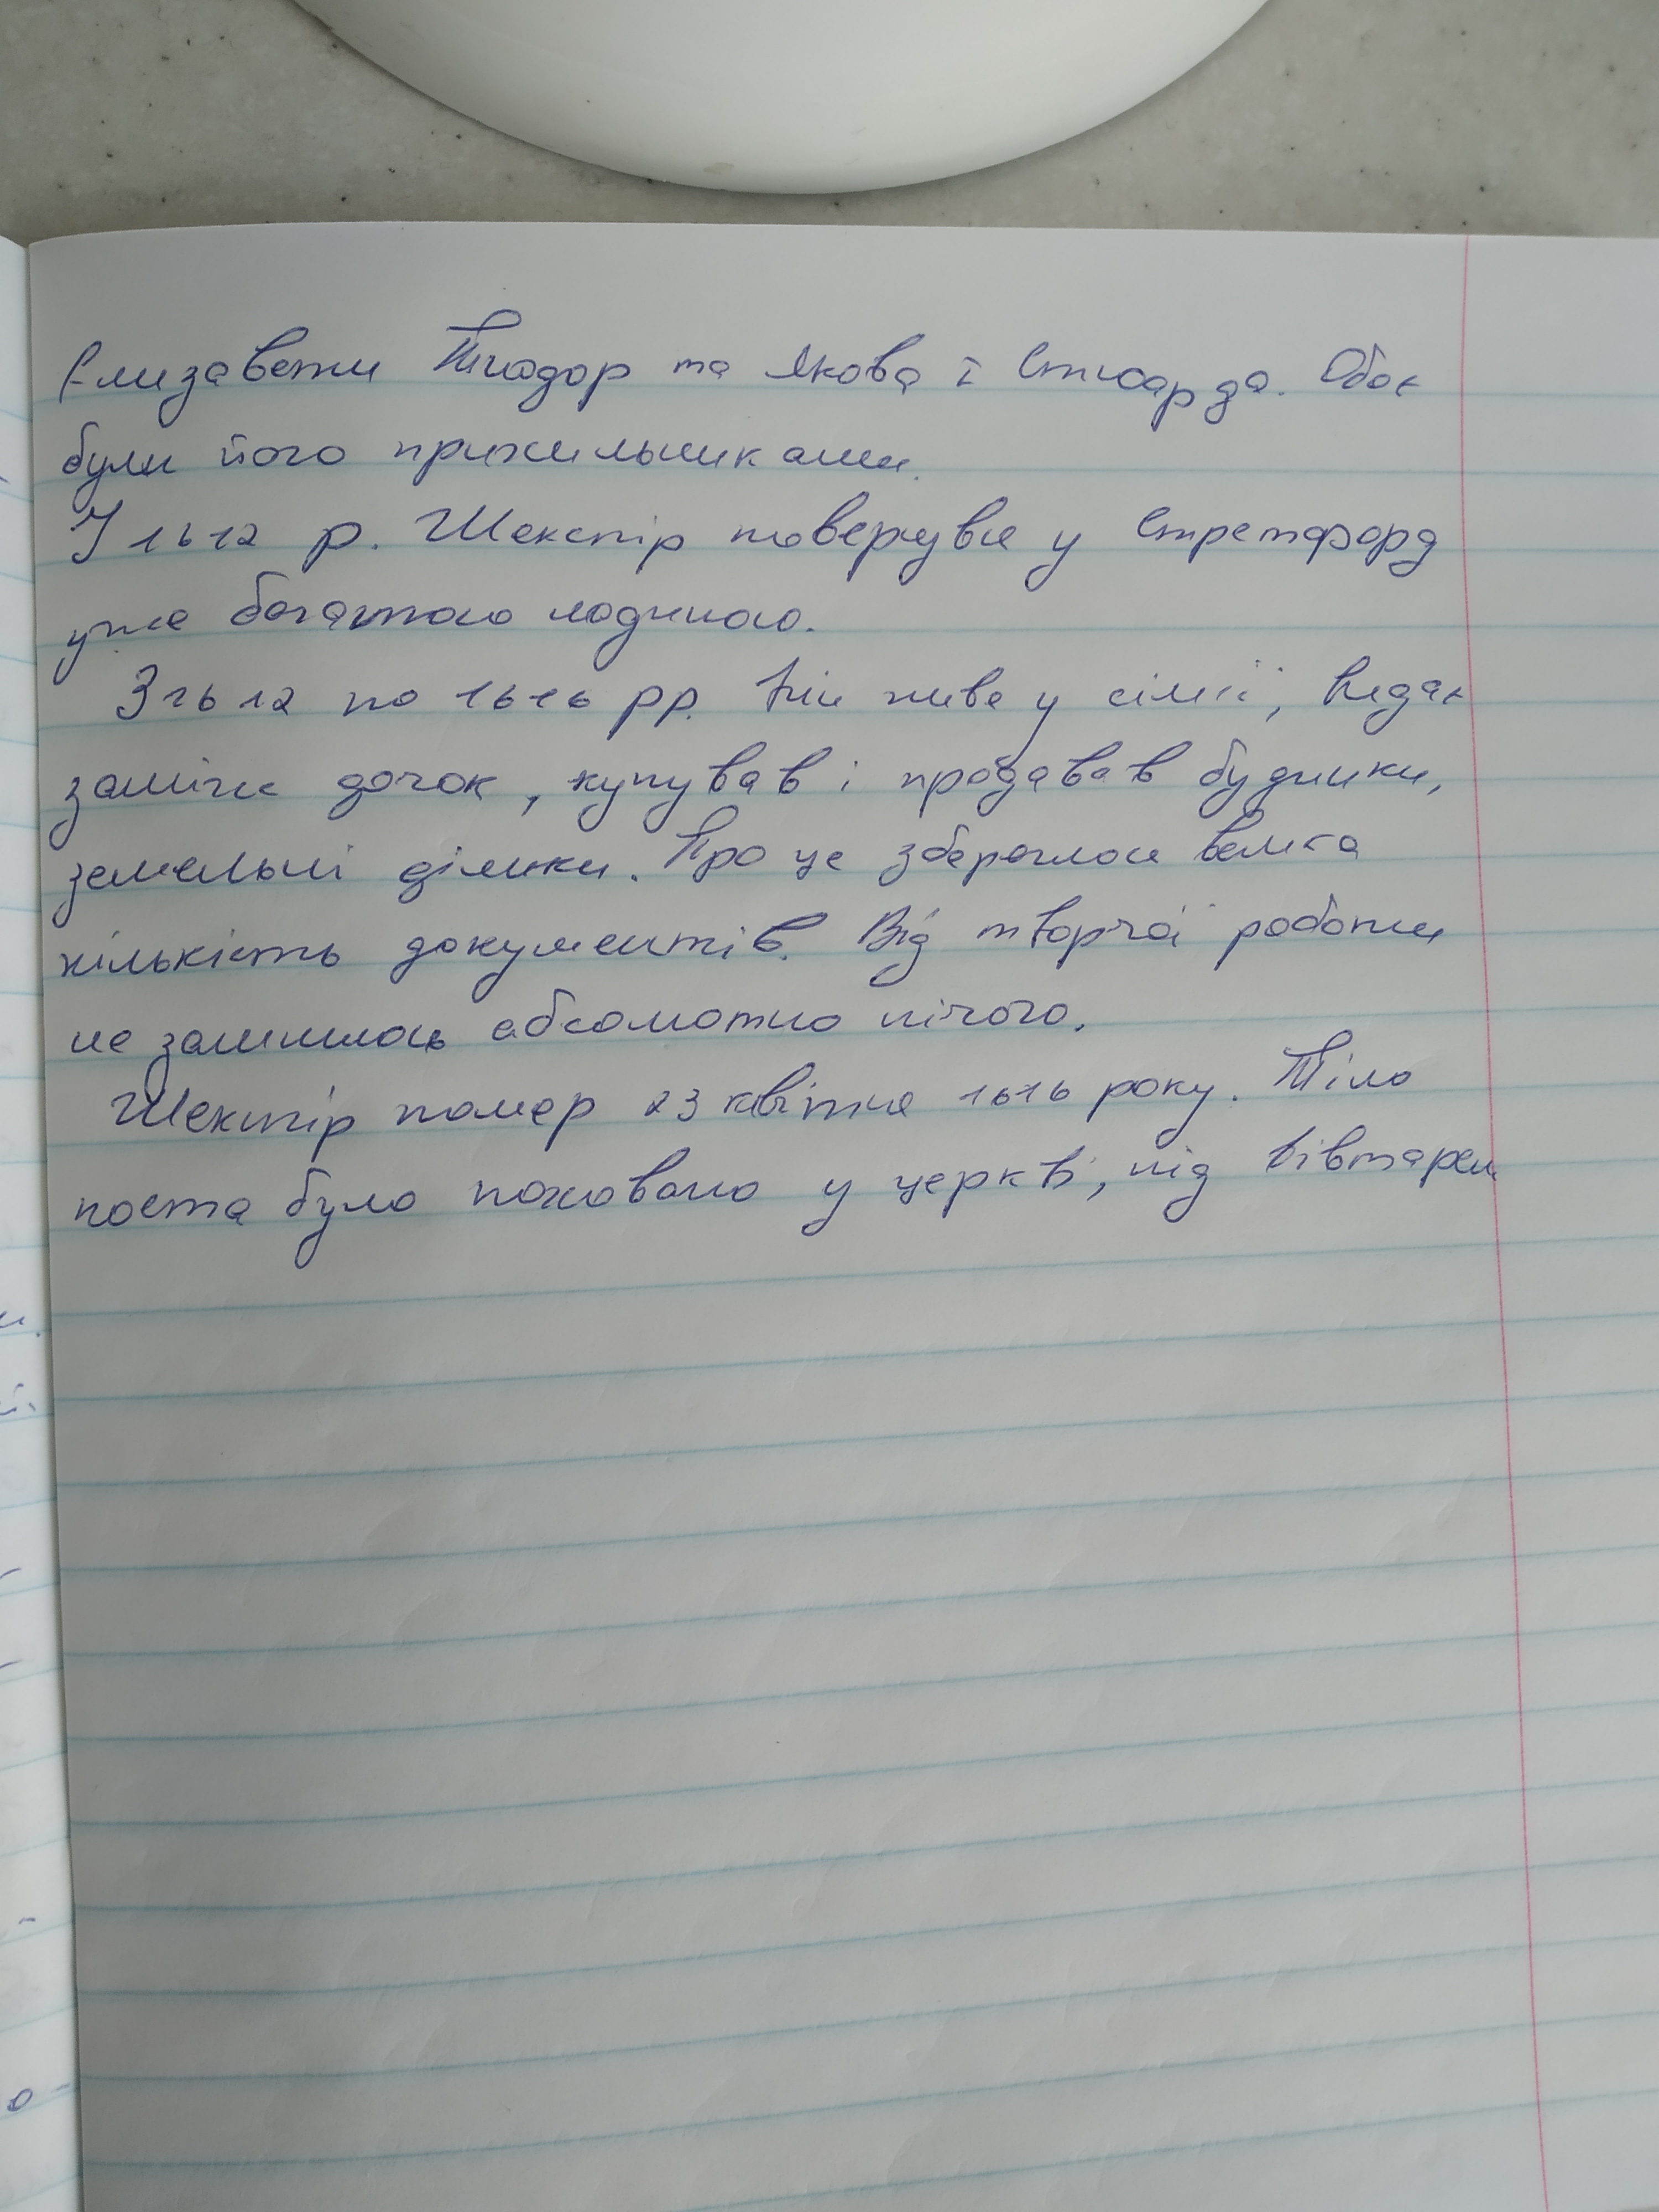 Єлизавети Тюдор та Якова І Стюарда. Обоє
були його прихильниками.
У 1612 р. Шекспір повернувся у Стретфорд
уже багатою людиною.
З 1612 по 1616 рр. він живе у сім'ї, видає
заміж дочок, купував і продавав будинки,
земельні ділянки. Про це збереглася велика
кількість документів. Від творчої роботи
не залишилось абсолютно нічого.
Шекспір помер 23 квітня 1616 року. Тіло
поета було поховано у церкві, під вівтарем